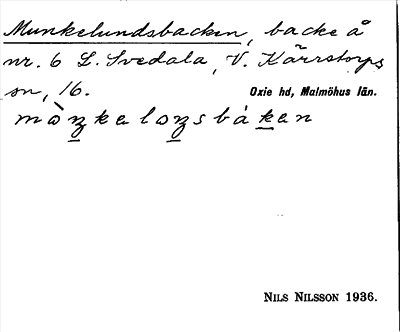 Munkelundsbacken, backe å
nr. 6 L. Svedala, V. Kärrstorps
sn, 16.
Oxie hd, Malmöhus län.
mòŋkeloŋsbáken
NILS NILSSON 1936.